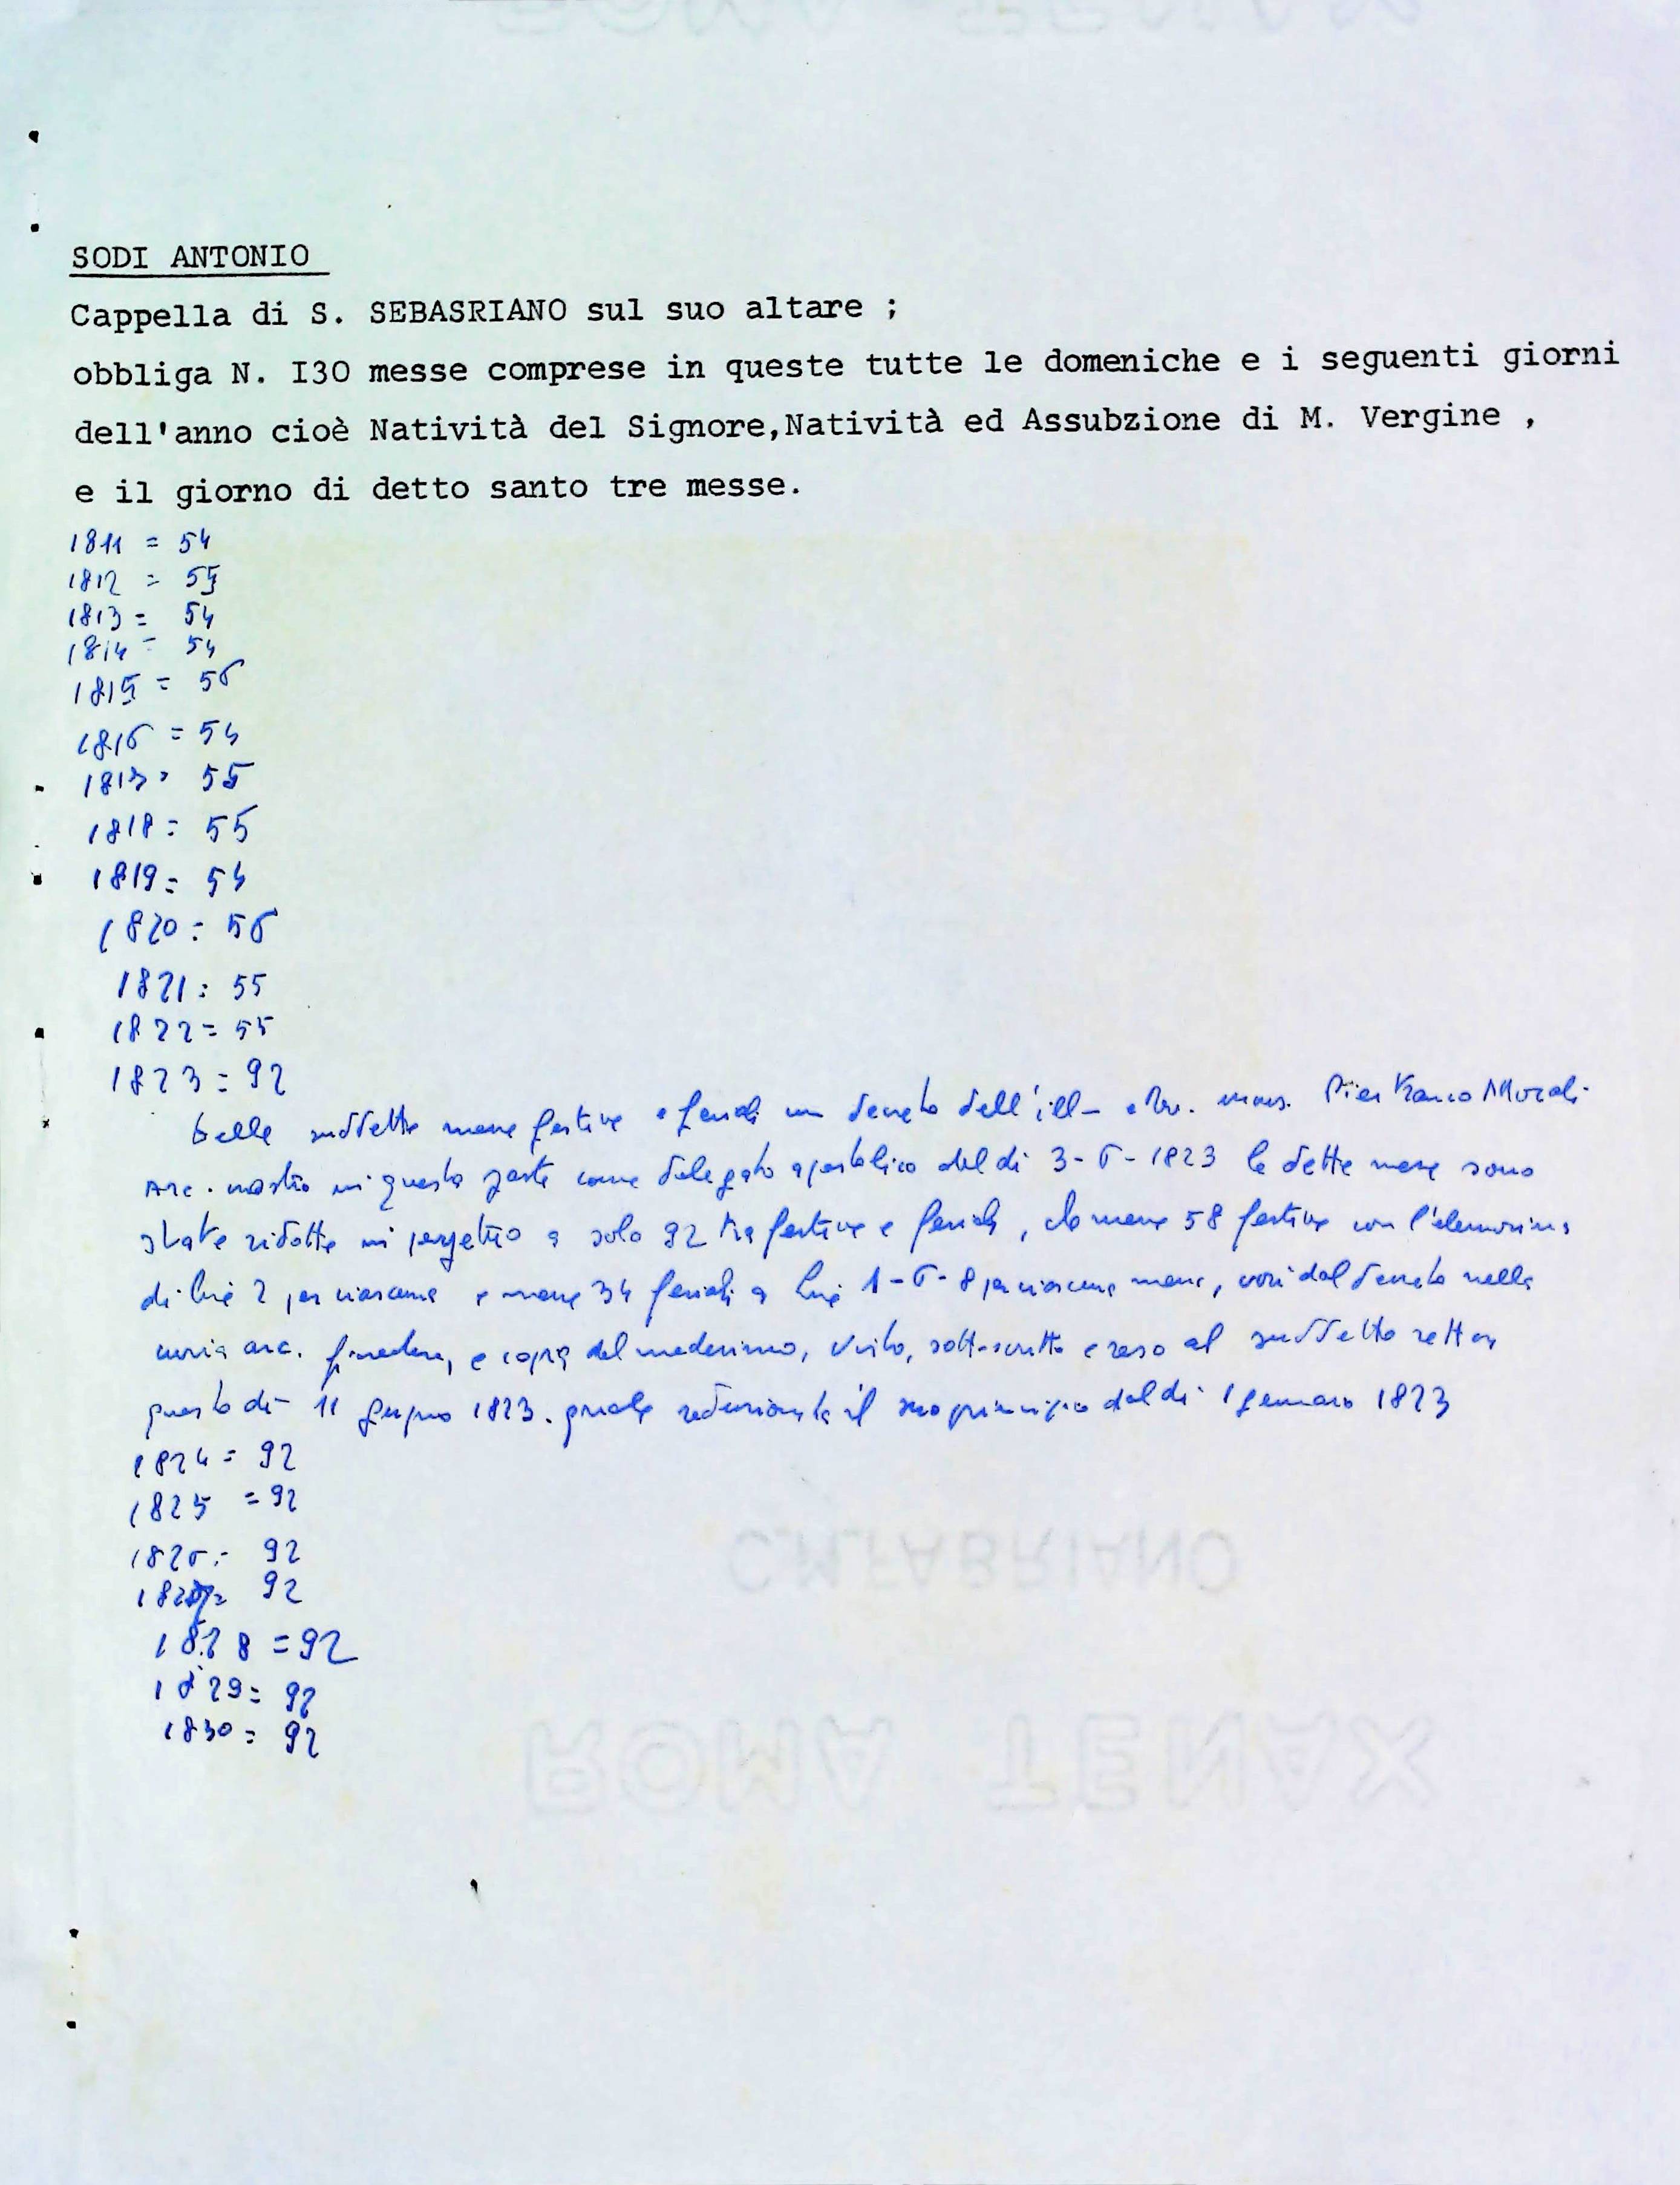 SODI ANTONIO
Cappella di S. SEBASRIANO sul suo altare ;
obbliga N. I3O messe comprese in queste tutte le domeniche e i seguenti giorni
dell'anno cioè Natività del Signore,Natività ed Assubzione di M. Vergine ,
e il giorno di detto santo tre messe.
1811 = 54
1812 = 55
1813 = 54
1814 = 54
1815 = 56
1816 = 54
1817 = 55
1818 = 55
1819 = 54
1820 = 56
1821 = 55
1822 = 55
1823 = 92
Delle suddette messe festive e feriali un decreto dell'ill- e Rev. mons. Pier Franco Morali
Arc. nostro in questa parte come delegato apostolico del di 3-6-1823 le dette messe sono
state ridotte in perpetuo a solo 92 tra festive e feriali, messe 58 festive con l'elemosina
di lire 2 per ciascuna e messe 34 feriali a lire 1-6-8 per ciascuna messa, così dal decreto nella
curia arc. e copia del medesimo, visto, sottoscritto e reso al suddetto rettor
questo di 11 giugno 1823. quale reduzione il suo principio dal di 1 gennaio 1823
1824 = 92
1825 = 92
1826 = 92
1827 = 92
1828 = 92
1829 = 92
1830 = 92
C.M.FABRIANO
ROMA TENAX